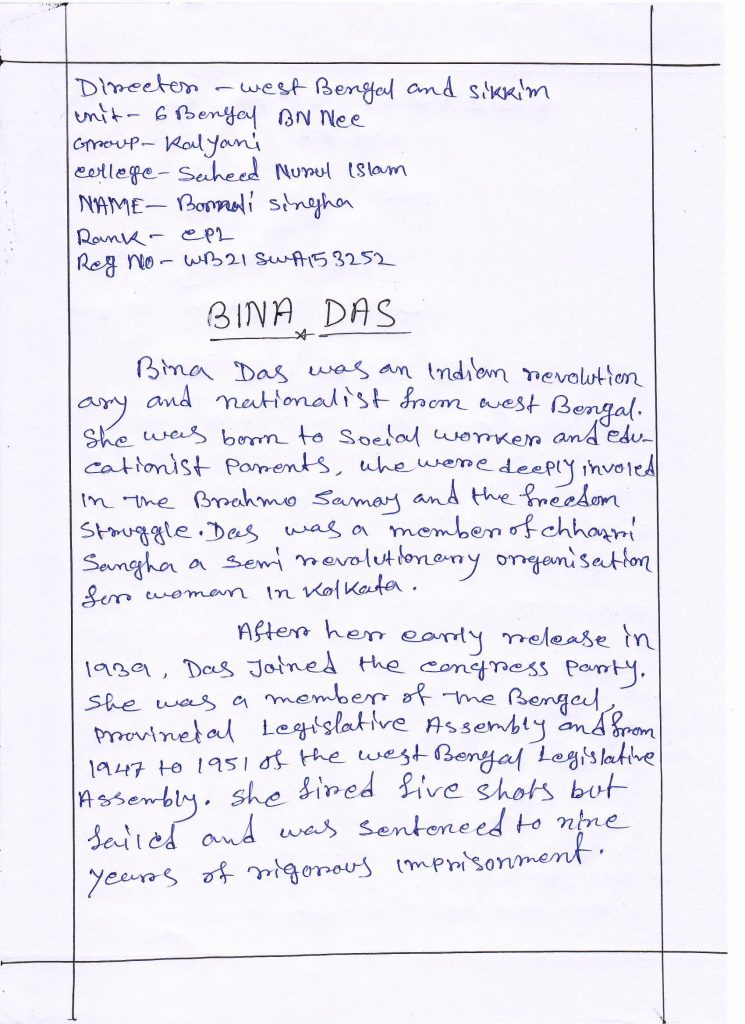 Director - west Bengal and sikkim
unit - 6 Bengal BN Ncc
Group - Kalyani
college - Saheed Nurul Islam
NAME - Bornali singha
Rank - CPL
Reg No - WB21SWA153252
BINA DAS
Bina Das was an Indian revolution
ary and nationalist from west Bengal.
She was born to social worker and edu-
cationist Parents, whe were deeply involed
in the Brahmo Samaj and the freedom
struggle. Das was a member of chhatri
Sangha a semi revolutionary organisation
for woman in Kolkata.
After her early release in
1939, Das Joined the congress Party.
She was a member of the Bengal
provincial Legislative Assembly and from
1947 to 1951 of the west Bengal Legislative
Assembly. She fired five shots but
failed and was sentenced to nine
years of rigorous imprisonment.